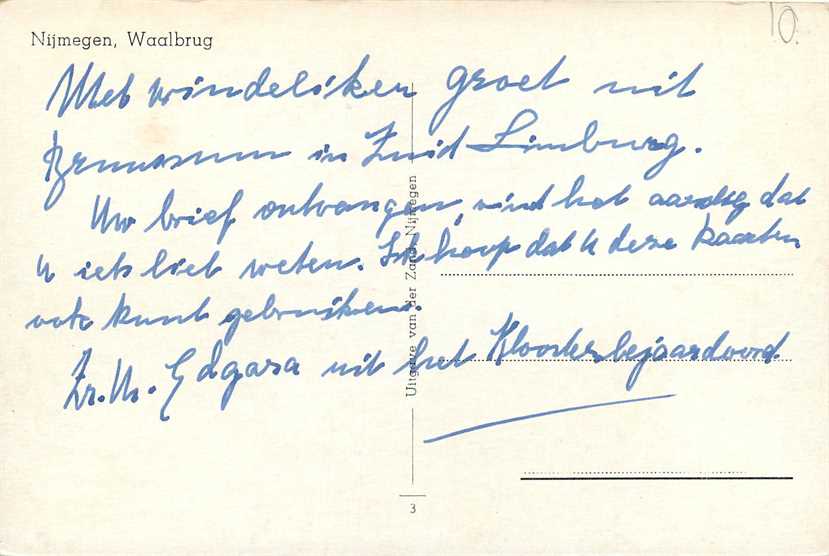 10.
Nijmegen, Waalbrug
Met vrindeliken groet uit
Brunssum in Zuid Limburg.
Uw brief ontvangen, vind het aardig dat
u iets liet weten. Ik hoop dat u deze kaarten
ook kunt gebruiken.
Zr. M. Edgara uit het Kloosterbejaardoord.
Uitgave van der Zand, Nijmegen
3